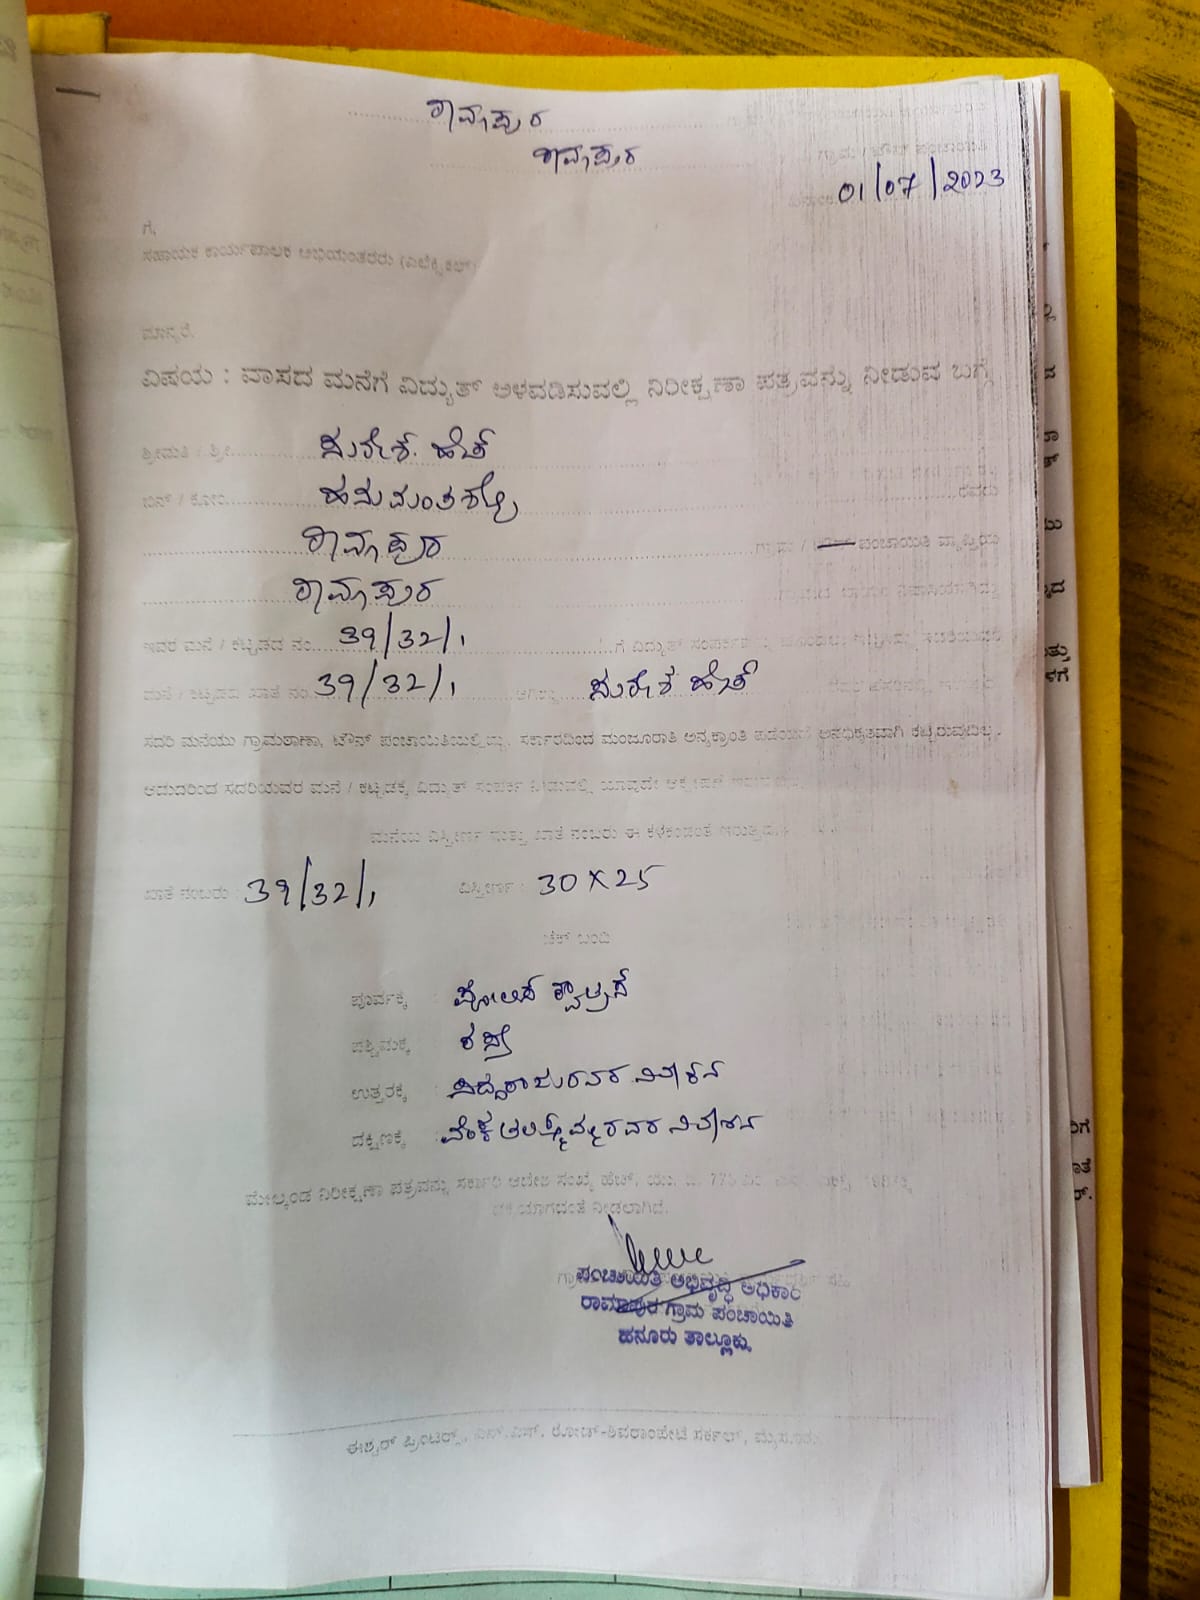 ರಾಮಾಪುರ
ರಾಮಾಪುರ
ಗ್ರಾಮ / ಟೌನ್ ಪಂಚಾಯಿತಿ
01/07/2023
ಗೆ,
ಸಹಾಯಕ ಕಾರ್ಯಪಾಲಕ ಅಭಿಯಂತರರು (ಎಲೆಕ್ಟ್ರಿಕಲ್)
ಮಾನ್ಯರೆ,
ವಿಷಯ : ವಾಸದ ಮನೆಗೆ ವಿದ್ಯುತ್ ಅಳವಡಿಸುವಲ್ಲಿ ನಿರೀಕ್ಷಣಾ ಪತ್ರವನ್ನು ನೀಡುವ ಬಗ್ಗೆ
ಶ್ರೀಮತಿ / ಶ್ರೀ. ಸುರೇಶ. ಹೆಚ್
ಬಿನ್ / ಕೋಂ ಹನುಮಂತಶೆಟ್ಟಿ ರವರು
ರಾಮಾಪುರ ಗ್ರಾಮ / ಪಂಚಾಯಿತಿ ವ್ಯಾಪ್ತಿಯ
ರಾಮಾಪುರ
ಇವರ ಮನೆ / ಕಟ್ಟಡದ ನಂ. 39/32/1 ಗೆ ವಿದ್ಯುತ್ ಸಂಪರ್ಕ
ಮನೆ / ಕಟ್ಟಡದ ಖಾತೆ ನಂ 39/32/1 ಆಗಿದ್ದು ಸುರೇಶ ಹೆಚ್
ಸದರಿ ಮನೆಯು ಗ್ರಾಮಠಾಣಾ, ಟೌನ್ ಪಂಚಾಯಿತಿಯಲ್ಲಿದ್ದು, ಸರ್ಕಾರದಿಂದ ಮಂಜೂರಾತಿ ಅನ್ಯಕ್ರಾಂತಿ ಪಡೆಯದೆ ಅನಧಿಕೃತವಾಗಿ ಕಟ್ಟಿರುವುದಿಲ್ಲ.
ಆದುದರಿಂದ ಸದರಿಯವರ ಮನೆ / ಕಟ್ಟಡಕ್ಕೆ ವಿದ್ಯುತ್ ಸಂಪರ್ಕ ನೀಡುವಲ್ಲಿ ಯಾವುದೇ ಆಕ್ಷೇಪಣೆ
ಮನೆಯ ವಿಸ್ತೀರ್ಣ ಮತ್ತು ಖಾತೆ ನಂಬರು ಈ ಕೆಳಕಂಡಂತೆ ಇರುತ್ತದೆ.
ಖಾತೆ ನಂಬರು : 39/32/1 ವಿಸ್ತೀರ್ಣ : 30 X 25
ಚೆಕ್ ಬಂದಿ
ಪೂರ್ವಕ್ಕೆ : ಪೋಲಿಸ್ ಕ್ವಾಟ್ರಸ್
ಪಶ್ಚಿಮಕ್ಕೆ ರಸ್ತೆ
ಉತ್ತರಕ್ಕೆ : ಸಿದ್ದರಾಜುರವರ ನಿವೇಶನ
ದಕ್ಷಿಣಕ್ಕೆ : ವೆಂಕಟಲಕ್ಷ್ಮಮ್ಮರವರ ನಿವೇಶನ
ಮೇಲ್ಕಂಡ ನಿರೀಕ್ಷಣಾ ಪತ್ರವನ್ನು ಸರ್ಕಾರಿ ಆದೇಶ ಸಂಖ್ಯೆ ಹೆಚ್. ಯು. ಡಿ. 775
ನೀಡಲಾಗಿದೆ.
ಪಂಚಾಯಿತಿ ಅಭಿವೃದ್ಧಿ ಅಧಿಕಾರಿ
ರಾಮಾಪುರ ಗ್ರಾಮ ಪಂಚಾಯಿತಿ
ಹನೂರು ತಾಲ್ಲೂಕು
ಈಶ್ವರ್ ಪ್ರಿಂಟರ್ಸ್, ಎನ್.ಎಸ್. ರೋಡ್-ಶಿವರಾಂಪೇಟೆ ಸರ್ಕಲ್, ಮೈಸೂರು